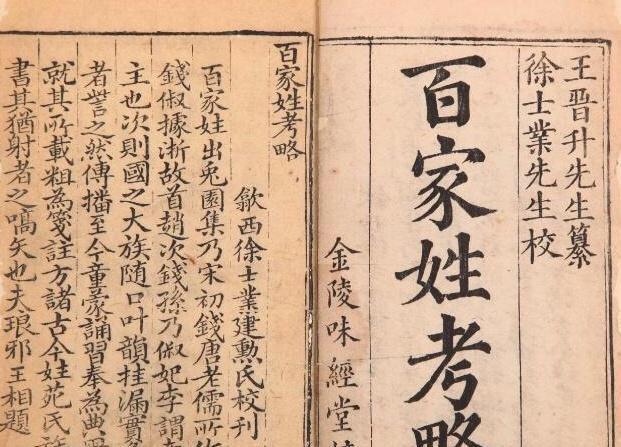 王晉升先生纂
徐士業先生校
百家姓考略
金陵味經堂
百家姓考略
歙西徐士業建勲氏校刊
百家姓出兎園集乃宋初錢唐老儒所
錢俶據浙故首趙次錢孫乃俶妃李謂
主也次則國之大族随口叶韻挂漏實
者訾之然傳播至今童蒙誦習奉為典
就其所載粗為箋註方諸古今姓苑氏族
書其猶射者之嚆矢也夫琅邪王相題